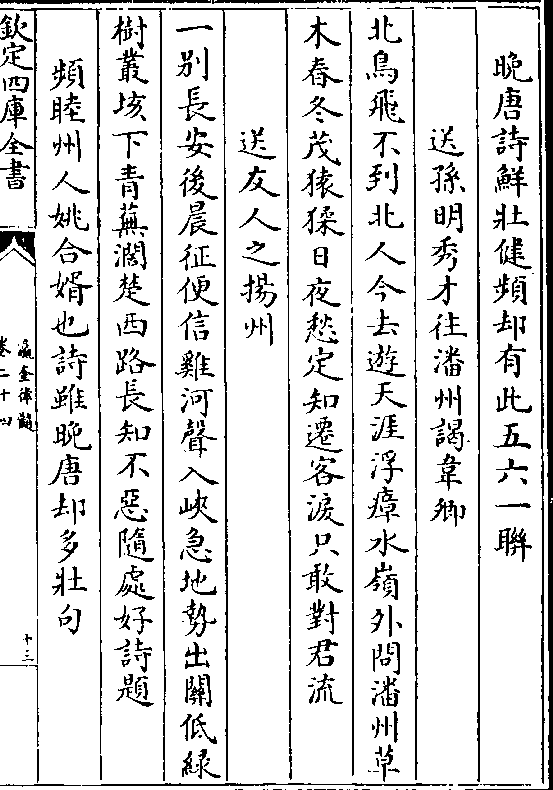 晚唐詩鮮壯健頻却有此五六一聯
送孫明秀才往潘州謁韋卿
北鳥飛不到北人今去遊天涯浮瘴水嶺外問潘州草
木春冬茂猿猱日夜愁定知遷客淚只敢對君流
送友人之揚州
一别長安後晨征便信雞河聲入峽急地勢出關低綠
樹叢垓下青蕪濶楚西路長知不惡隨處好詩題
頻睦州人姚合婿也詩雖晚唐却多壯句
欽定四庫全書
瀛奎律髓
卷二十四
十三